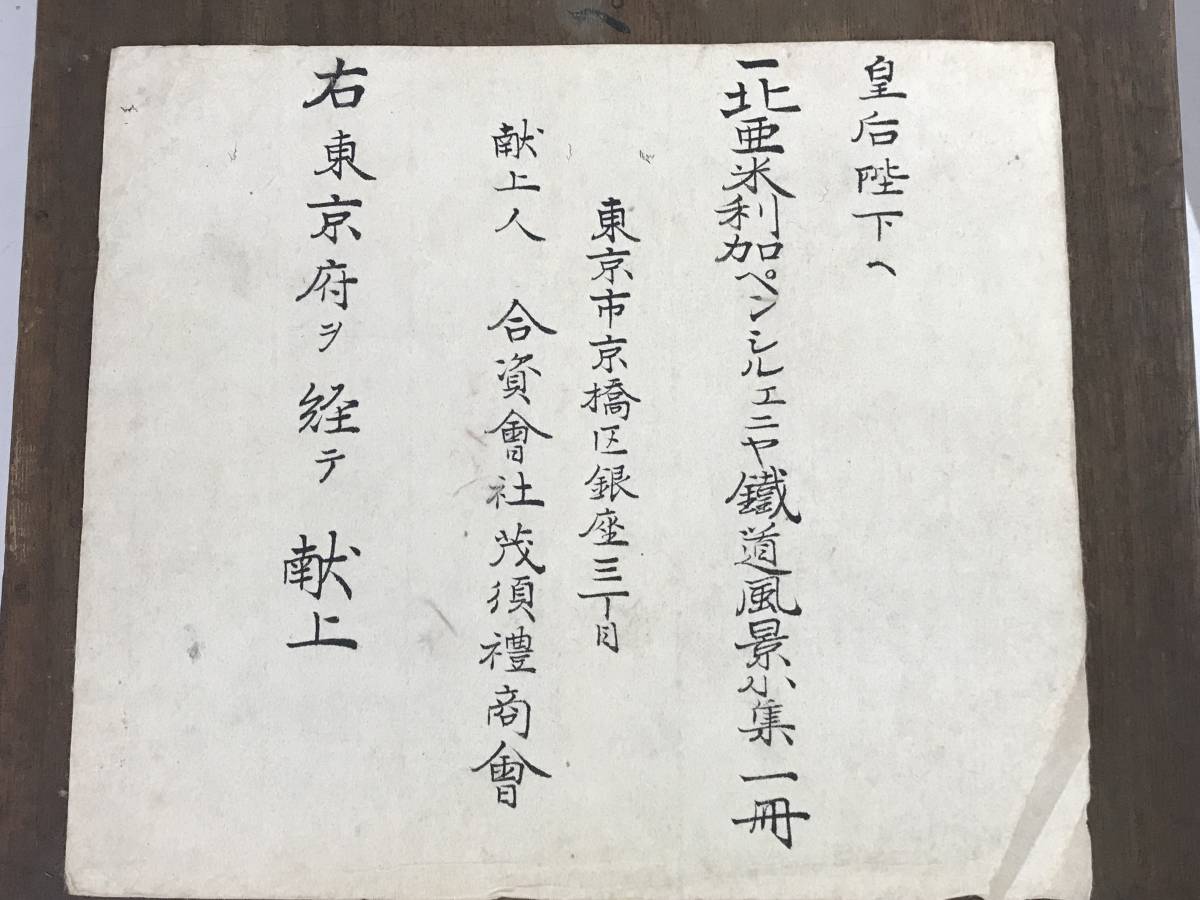 皇后陛下ヘ
一北亜米利加ペンシルエニヤ鐵道風景小集一冊
東京市京橋区銀座三丁目
献上人 合資會社茂須禮商會
右東京府ヲ経テ献上